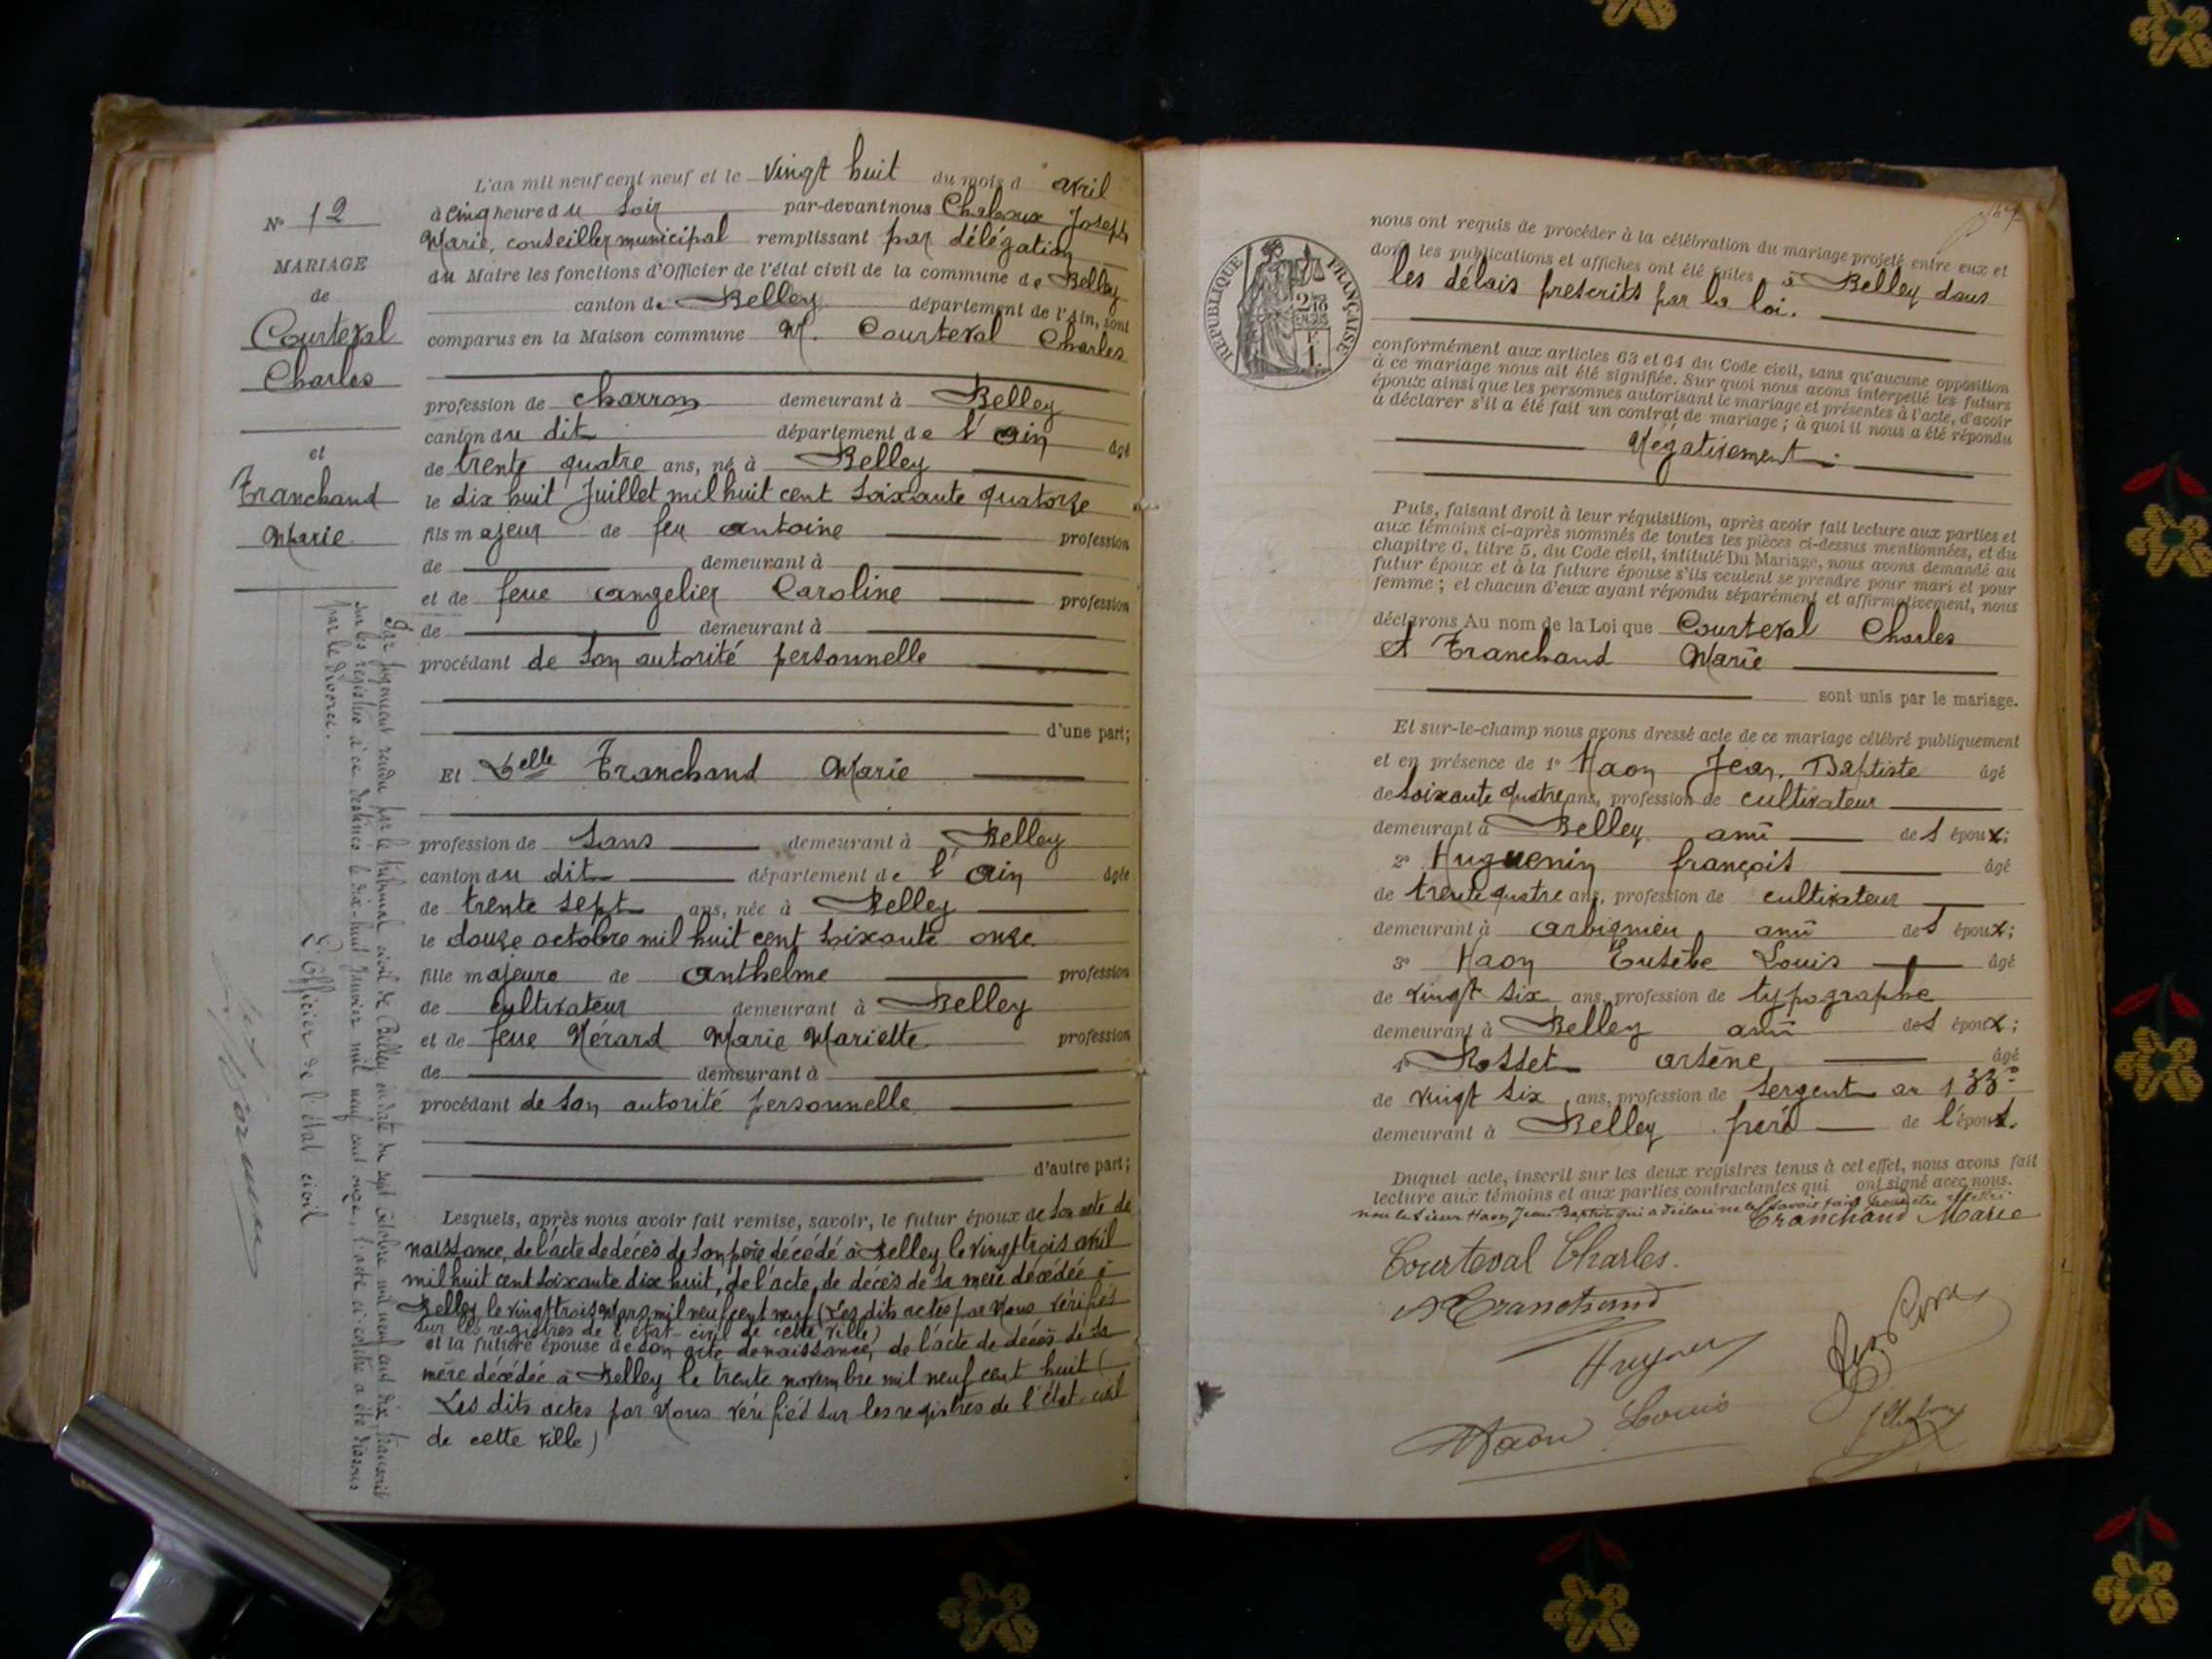 L'an mil neuf cent neuf et le vingt huit du mois d'avril
à cinq heure du soir par-devant nous Chaboux Joseph
Marie, conseiller municipal remplissant par délégation
du Maire les fonctions d'Officier de l'état civil de la commune de Belley
canton de Belley département de l'Ain, sont
comparus en la Maison commune M. Courteval Charles
profession de charron demeurant à Belley
canton du dit département de l'Ain âgé
de trente quatre ans, né à Belley
le dix huit Juillet mil huit cent soixante quatorze
fils majeur de feu Antoine profession
de demeurant à
et de feue Angelier Caroline profession
de demeurant à
procédant de son autorité personnelle
d'une part;
Et Delle Tranchand Marie
profession de sans demeurant à Belley
canton du dit département de l'Ain âgée
de trente sept ans, née à Belley
le douze octobre mil huit cent soixante onze
fille majeure de Anthelme profession
de cultivateur demeurant à Belley
et de feue Mérard Marie Mariette profession
de demeurant à
procédant de son autorité personnelle
d'autre part;
Lesquels, après nous avoir fait remise, savoir, le futur époux de son acte de
naissance, de l'acte de décès de son père décédé à Belley le vingt trois avril
mil huit cent soixante dix huit, de l'acte de décès de sa mère décédée à
Belley le vingt trois Mars mil neuf cent neuf (Les dits actes par Nous vérifiés
sur les registres de l'état-civil de cette ville)
et la future épouse de son acte de naissance, de l'acte de décès de sa
mère décédée à Belley le trente novembre mil neuf cent huit (
Les dits actes par Nous vérifiés sur les registres de l'état-civil
de cette ville)
N° 12
MARIAGE
de
Courteval
Charles
et
Tranchand
Marie
Par jugement rendu par le tribunal civil de Belley en date du sept Octobre mil neuf cent dix, transcrit
sur les registres à ce destinés le dix-huit janvier mil neuf cent onze, l'acte ci-contre a été dissous
par le divorce.
L'Officier de l'état civil
167
RÉPUBLIQUE FRANÇAISE
nous ont requis de procéder à la célébration du mariage projeté entre eux et
dont les publications et affiches ont été faites à Belley dans
les délais prescrits par la loi.
conformément aux articles 63 et 64 du Code civil, sans qu'aucune opposition
à ce mariage nous ait été signifiée. Sur quoi nous avons interpellé les futurs
époux ainsi que les personnes autorisant le mariage et présentes à l'acte, d'avoir
à déclarer s'il a été fait un contrat de mariage; à quoi il nous a été répondu
Négativement.
Puis, faisant droit à leur réquisition, après avoir fait lecture aux parties et
aux témoins ci-après nommés de toutes les pièces ci-dessus mentionnées, et du
chapitre 6, titre 5, du Code civil, intitulé Du Mariage, nous avons demandé au
futur époux et à la future épouse s'ils veulent se prendre pour mari et pour
femme; et chacun d'eux ayant répondu séparément et affirmativement, nous
déclarons Au nom de la Loi que Courteval Charles
et Tranchand Marie
sont unis par le mariage.
Et sur-le-champ nous avons dressé acte de ce mariage célébré publiquement
et en présence de 1° Haon Jean Baptiste âgé
de soixante quatre ans, profession de cultivateur
demeurant à Belley ami des époux;
2° Huguenin françois âgé
de trente quatre ans, profession de cultivateur
demeurant à Arbignieu ami des époux;
3° Haon Eusèbe Louis âgé
de vingt six ans, profession de typographe
demeurant à Belley ami des époux;
4° Rosset Arsène âgé
de vingt six ans, profession de sergent au 133e
demeurant à Belley frère de l'époux.
Duquel acte, inscrit sur les deux registres tenus à cet effet, nous avons fait
lecture aux témoins et aux parties contractantes qui ont signé avec nous.
non le sieur Haon Jean Baptiste qui a déclaré ne le savoir faire
Tranchand Marie
Courteval Charles.
A Tranchand
Haon Louis